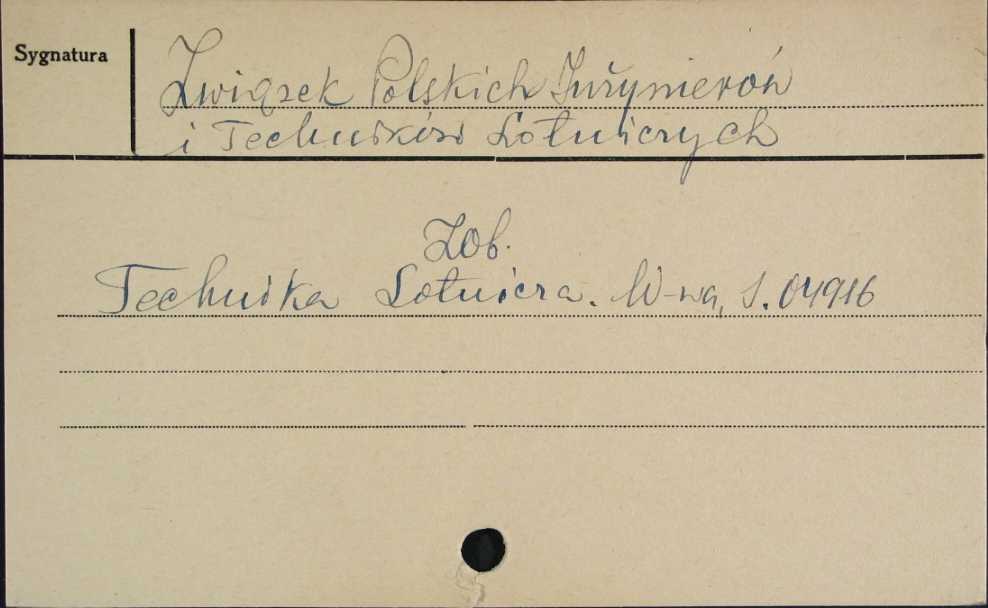 Sygnatura
Związek Polskich Inżynierów
i Techników Lotniczych
Zob.
Technika Lotnicza. W-wa, S. 04916